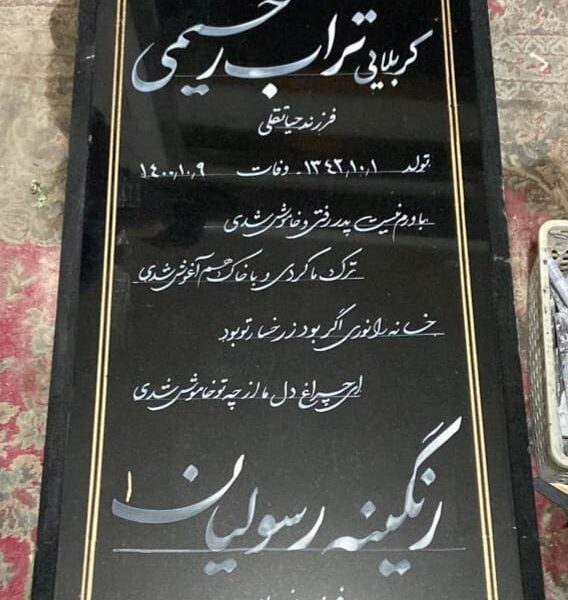 کربلایی تراب رحیمی
فرزند حیاتقلی
تولد ۱۳۴۲،۱۰،۱ - وفات ۱۴۰۰،۱۰،۹
باورم نیست پدر رفتی و خاموش شدی
ترک ما کردی و با خاک هم آغوش شدی
خانه را نوری اگر بود ز رخسار تو بود
ای چراغ دل ما از چه تو خاموش شدی
زنگینه رسولیان